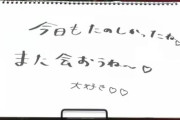 今日もたのしかったね♡
また会おうね〜♡
大好き♡♡